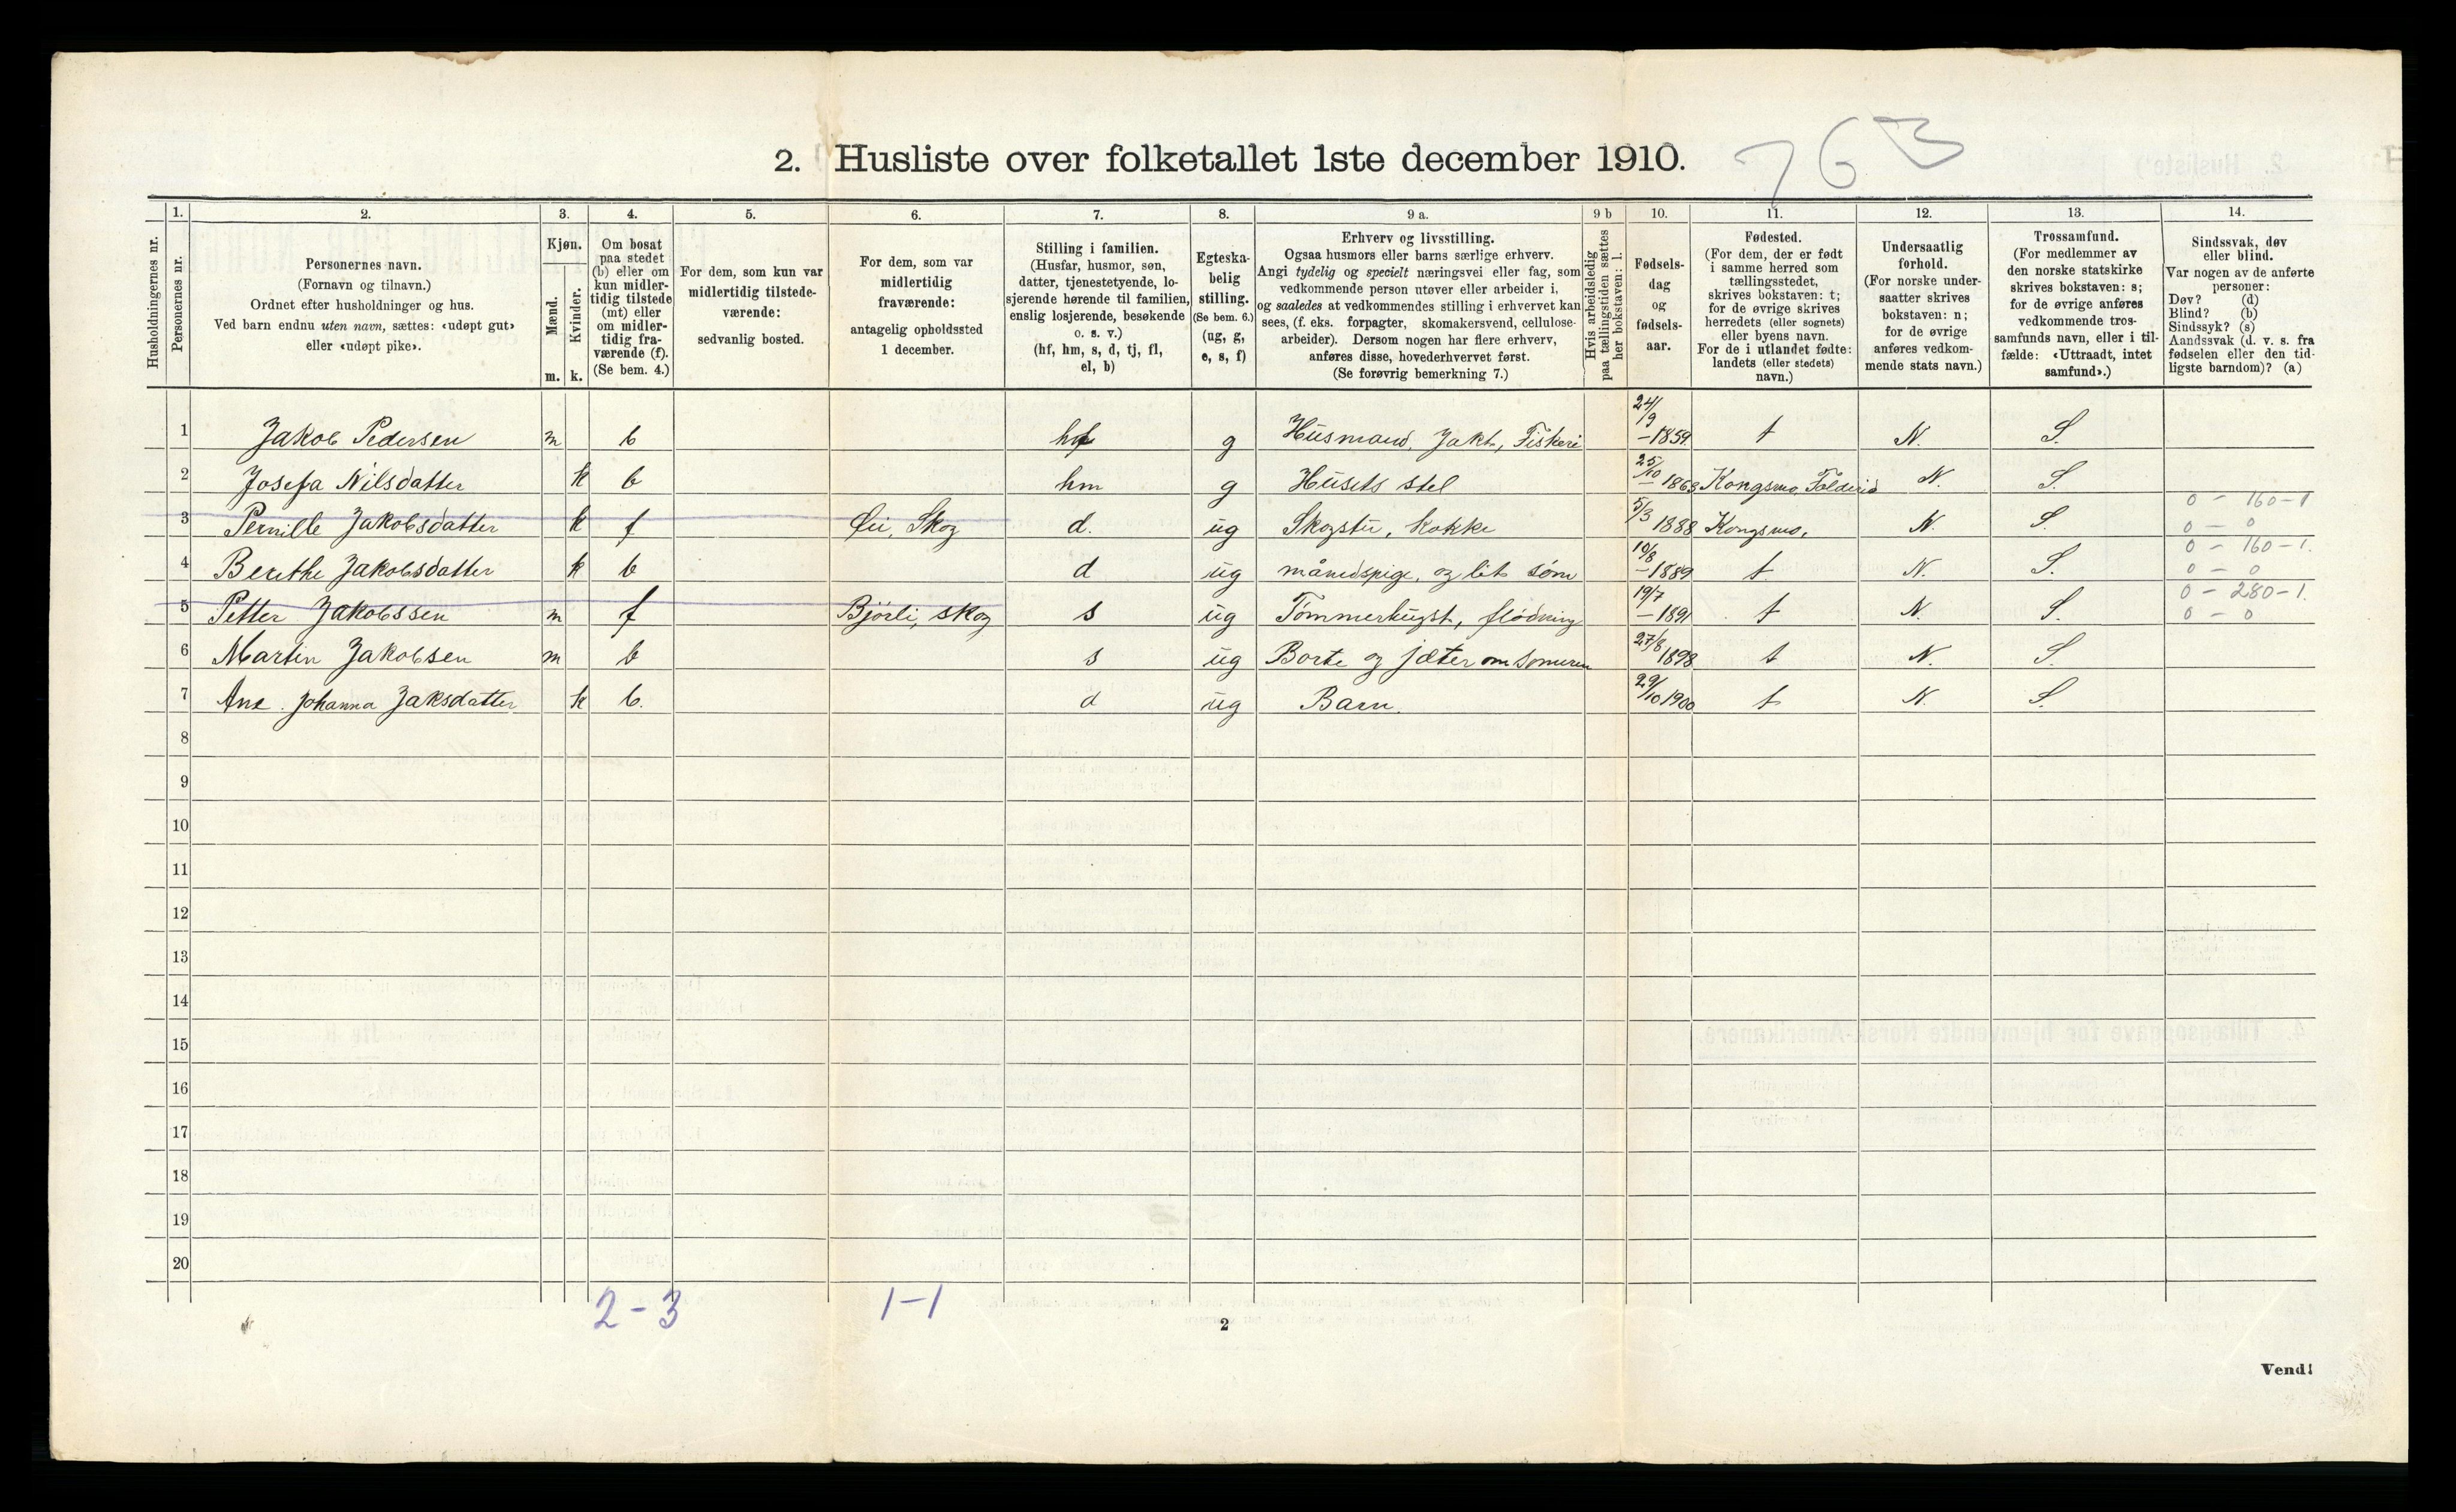 763
2. Husliste over folketallet 1ste december 1910.
Husholdningernes nr.
1. Personernes nr.
2. Personernes navn.
(Fornavn og tilnavn.)
Ordnet efter husholdninger og hus.
Ved barn endnu uten navn, sættes: «udøpt gut»
eller «udøpt pike».
3. Kjøn.
Mænd. m.
Kvinder. k.
4. Om bosat
paa stedet
(b) eller om
kun midler-
tidig tilstede
(mt) eller
om midler-
tidig fra-
værende (f).
(Se bem. 4.)
5. For dem, som kun var
midlertidig tilstede-
værende:
sedvanlig bosted.
6. For dem, som var
midlertidig
fraværende:
antagelig opholdssted
1 december.
7. Stilling i familien.
(Husfar, husmor, søn,
datter, tjenestetyende, lo-
sjerende hørende til familien,
enslig losjerende, besøkende
o. s. v.)
(hf, hm, s, d, tj, fl,
el, b)
8. Egteska-
belig
stilling.
(Se bem. 6.)
(ug, g,
e, s, f)
9 a. Erhverv og livsstilling.
Ogsaa husmors eller barns særlige erhverv.
Angi tydelig og specielt næringsvei eller fag, som
vedkommende person utøver eller arbeider i,
og saaledes at vedkommendes stilling i erhvervet kan
sees, (f. eks. forpagter, skomakersvend, cellulose-
arbeider). Dersom nogen har flere erhverv,
anføres disse, hovederhvervet først.
(Se forøvrig bemerkning 7.)
9 b Hvis arbeidsledig
paa tællingstiden sættes
her bokstaven: l.
10. Fødsels-
dag
og
fødsels-
aar.
11. Fødested.
(For dem, der er født
i samme herred som
tællingsstedet,
skrives bokstaven: t;
for de øvrige skrives
herredets (eller sognets)
eller byens navn.
For de i utlandet fødte:
landets (eller stedets)
navn.)
12. Undersaatlig
forhold.
(For norske under-
saatter skrives
bokstaven: n;
for de øvrige
anføres vedkom-
mende stats navn.)
13. Trossamfund.
(For medlemmer av
den norske statskirke
skrives bokstaven: s;
for de øvrige anføres
vedkommende tros-
samfunds navn, eller i til-
fælde: «Uttraadt, intet
samfund».)
14. Sindssvak, døv
eller blind.
Var nogen av de anførte
personer:
Døv? (d)
Blind? (b)
Sindssyk? (s)
Aandssvak (d. v. s. fra
fødselen eller den tid-
ligste barndom)? (a)
1 Jakob Pedersen m b hf g Husmand, Jakt, Fiskeri 24/9 -1859. t N. S.
2 Josefa Nilsdatter k b hm g Husets stel 25/10 1863 Kongsmo, N. S.
3 Pernille Jakobsdatter k f Øie, Skog d. ug Skogstu, kokke 5/3 1888 Kongsmo, N. S. 0 - 160-1 0 - 0
4 Berethe Jakobsdatter k b d ug månedspige, og lit søm 10/8 -1889 t N. S. 0 - 160-1. 0 - 0
5 Petter Jakobssen m f Bjørli, skog s ug Tømmerhugst, flødning 19/7 -1891 t N. S. 0 - 280-1. 0 - 0
6 Martin Jakobsen m b s ug Borte og jæter om someren 27/8 1898 t N. S.
7 Ane Johanna Jaksdatter k b. d ug Barn. 29/10 1900 t N. S.
8
9
10
11
12
13
14
15
16
17
18
19
20
2-3 1-1
2
Vend!